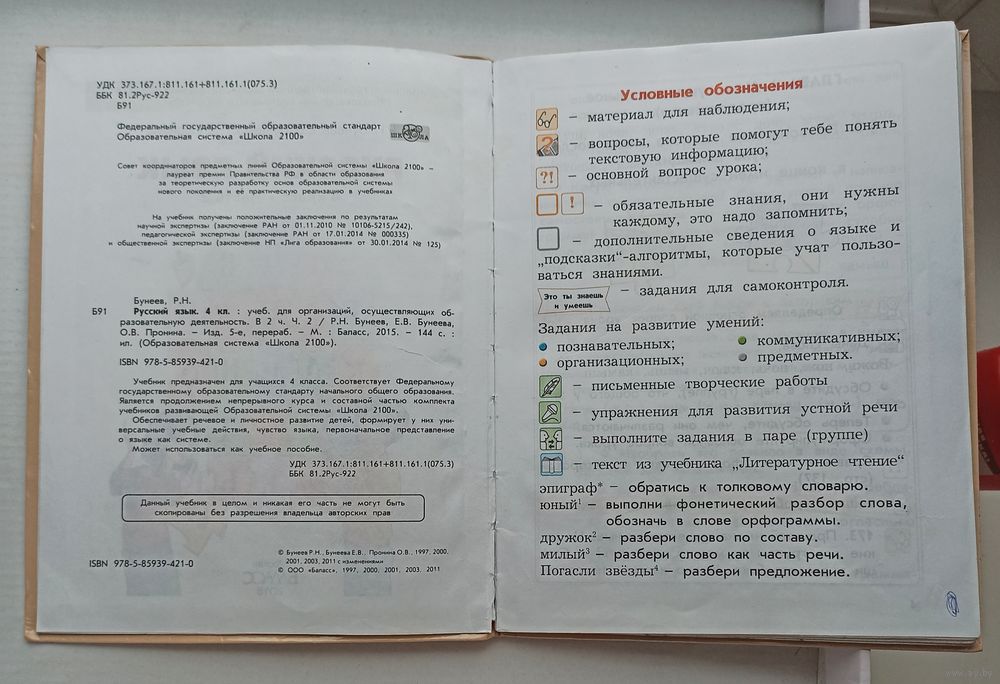 УДК 373.167.1:811.161+811.161.1(075.3)
ББК 81.2Рус-922
Б91
Федеральный государственный образовательный стандарт
Образовательная система «Школа 2100»
ШКОЛА
Совет координаторов предметных линий Образовательной системы «Школа 2100» –
лауреат премии Правительства РФ в области образования
за теоретическую разработку основ образовательной системы
нового поколения и её практическую реализацию в учебниках
На учебник получены положительные заключения по результатам
научной экспертизы (заключение РАН от 01.11.2010 № 10106-5215/242),
педагогической экспертизы (заключение РАН от 17.01.2014 № 000335)
и общественной экспертизы (заключение НП «Лига образования» от 30.01.2014 № 125)
Бунеев, Р.Н.
Б91 Русский язык. 4 кл. : учеб. для организаций, осуществляющих об-
разовательную деятельность. В 2 ч. Ч. 2 / Р.Н. Бунеев, Е.В. Бунеева,
О.В. Пронина. – Изд. 5-е, перераб. – М. : Баласс, 2015. – 144 с. :
ил. (Образовательная система «Школа 2100»).
ISBN 978-5-85939-421-0
Учебник предназначен для учащихся 4 класса. Соответствует Федеральному
государственному образовательному стандарту начального общего образования.
Является продолжением непрерывного курса и составной частью комплекта
учебников развивающей Образовательной системы «Школа 2100».
Обеспечивает речевое и личностное развитие детей, формирует у них уни-
версальные учебные действия, чувство языка, первоначальное представление
о языке как системе.
Может использоваться как учебное пособие.
УДК 373.167.1:811.161+811.161.1(075.3)
ББК 81.2Рус-922
Данный учебник в целом и никакая его часть не могут быть
скопированы без разрешения владельца авторских прав
© Бунеев Р.Н., Бунеева Е.В., Пронина О.В., 1997, 2000,
2001, 2003, 2011 с изменениями
ISBN 978-5-85939-421-0
© ООО «Баласс», 1997, 2000, 2001, 2003, 2011
Условные обозначения
– материал для наблюдения;
? – вопросы, которые помогут тебе понять
текстовую информацию;
?! – основной вопрос урока;
! – обязательные знания, они нужны
каждому, это надо запомнить;
– дополнительные сведения о языке и
„подсказки“-алгоритмы, которые учат пользо-
ваться знаниями.
Это ты знаешь
и умеешь
– задания для самоконтроля.
Задания на развитие умений:
• познавательных; • коммуникативных;
• организационных; • предметных.
– письменные творческие работы
– упражнения для развития устной речи
– выполните задания в паре (группе)
– текст из учебника „Литературное чтение“
эпиграф* – обратись к толковому словарю.
юный¹ – выполни фонетический разбор слова,
обозначь в слове орфограммы.
дружок² – разбери слово по составу.
милый³ – разбери слово как часть речи.
Погасли звёзды⁴ – разбери предложение.
www.ay.by